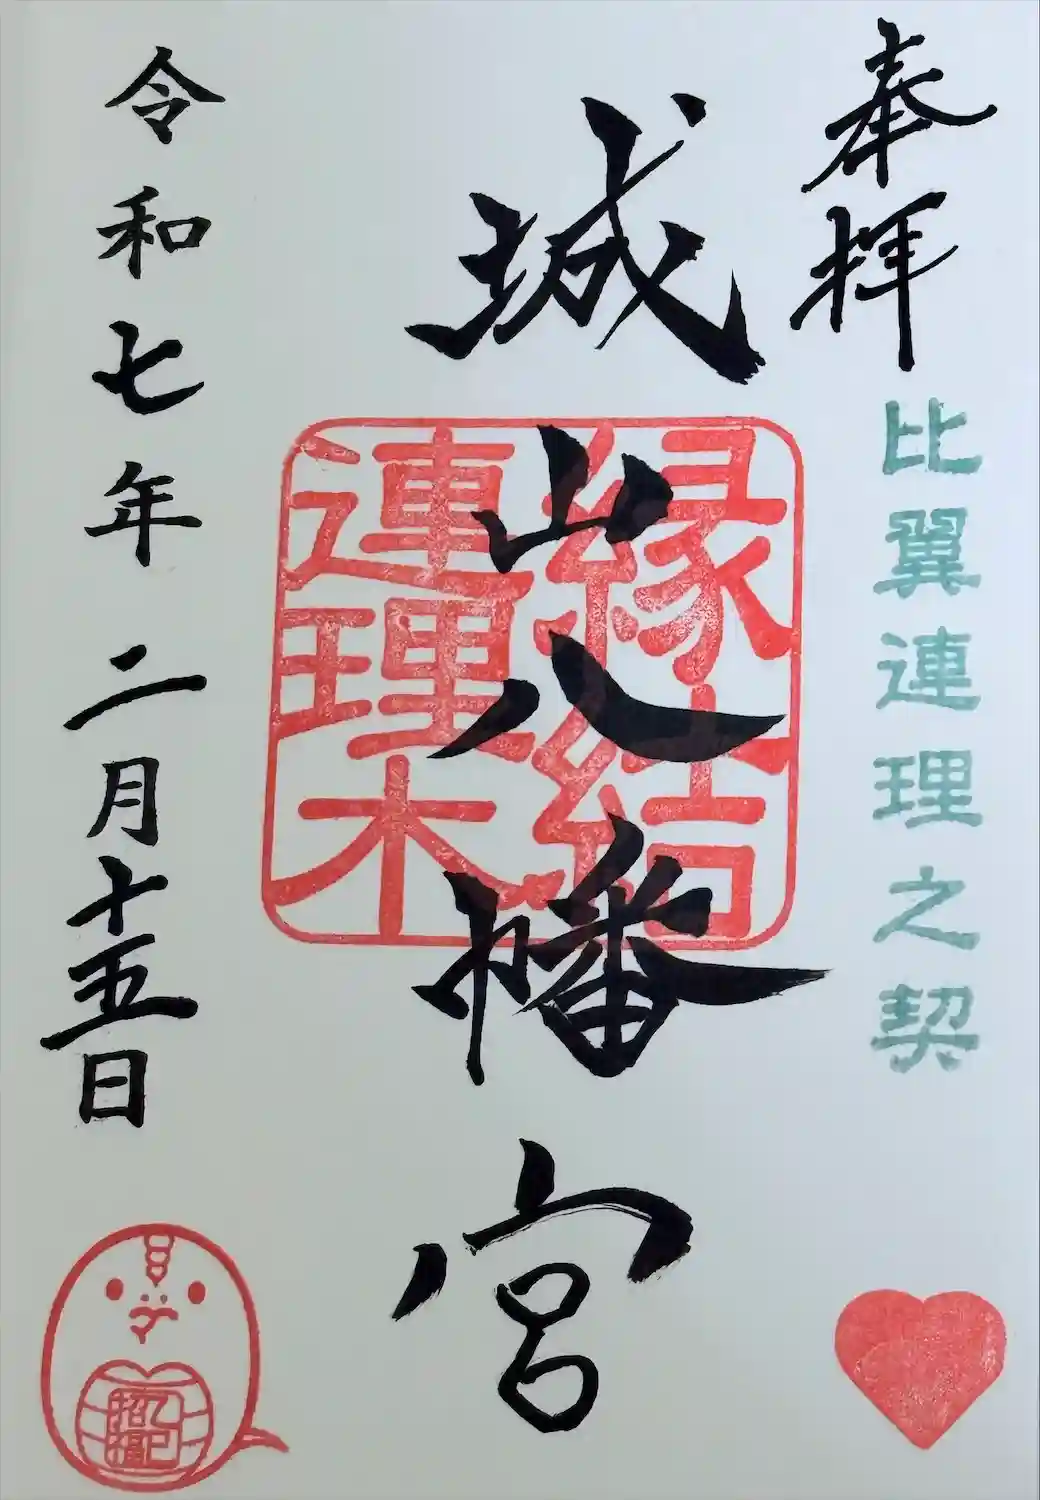 奉拝
比翼連理之契
城山八幡宮
縁結
連理木
令和七年二月十五日
乙巳
招福